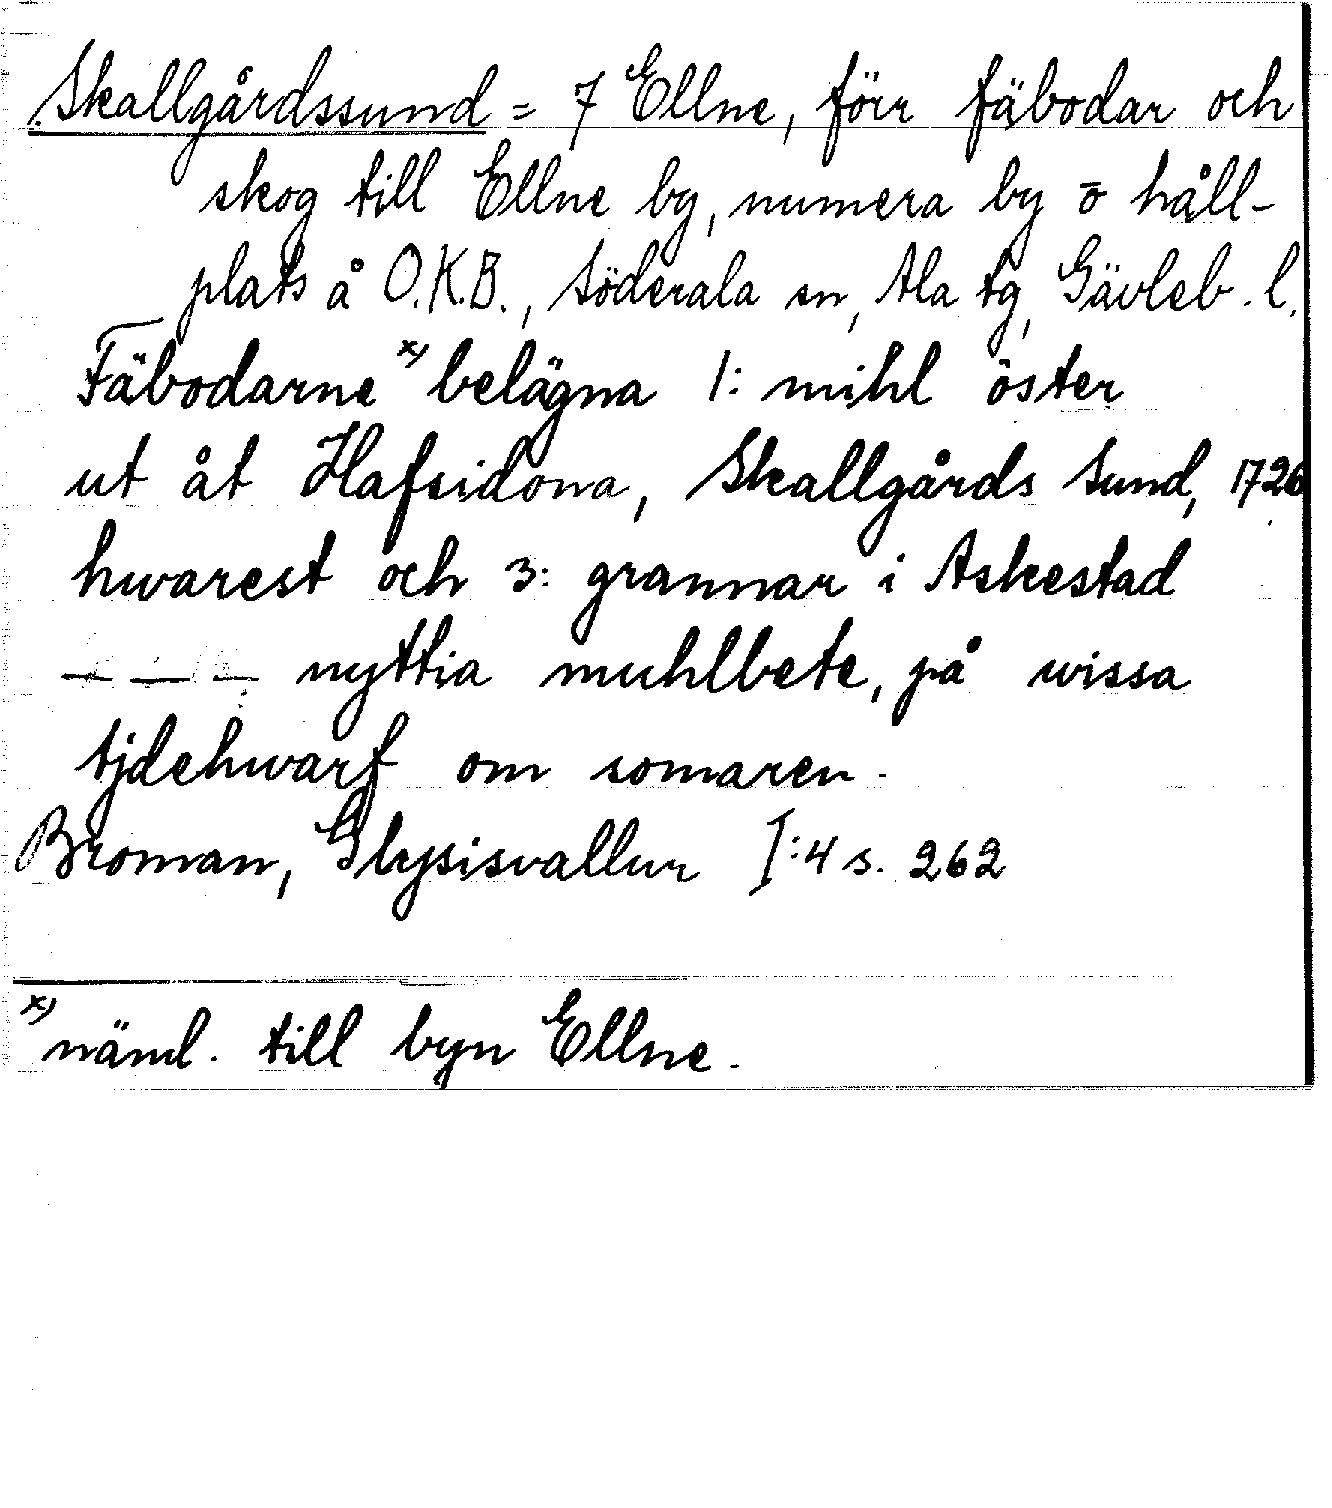 Skallgårdssund = 7 Ellne, förr fäbodar och
skog till Ellne by, numera by o håll-
plats å O.K.B., Söderala sn, Ala tg, Gävleb. l.
Fäbodarne x) belägna 1: mihl öster
ut åt Hafsidona, Skallgårds Sund, 1726
hwarest och 3: grannar i Askestad
— — — nyttia muhlbete, på wissa
tjdehwarf om somaren.
Broman, Glysisvallur I:4 s. 262
x) näml. till byn Ellne.